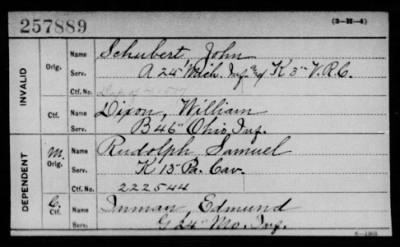 257889
(3-H-4)
INVALID
Orig.
Name Schubert, John
Serv. A 24" Mich. Inf. & K 3" V.R.C.
Ctf. No.
Ctf.
Name Dixon, William
Serv. B 46" Ohio Inf.
DEPENDENT
M. Orig.
Name Rudolph Samuel
Serv. K 15" Pa. Cav.
Ctf. No. 222544
C. Ctf.
Name Inman, Edmund
Serv. G 24" Mo. Inf.